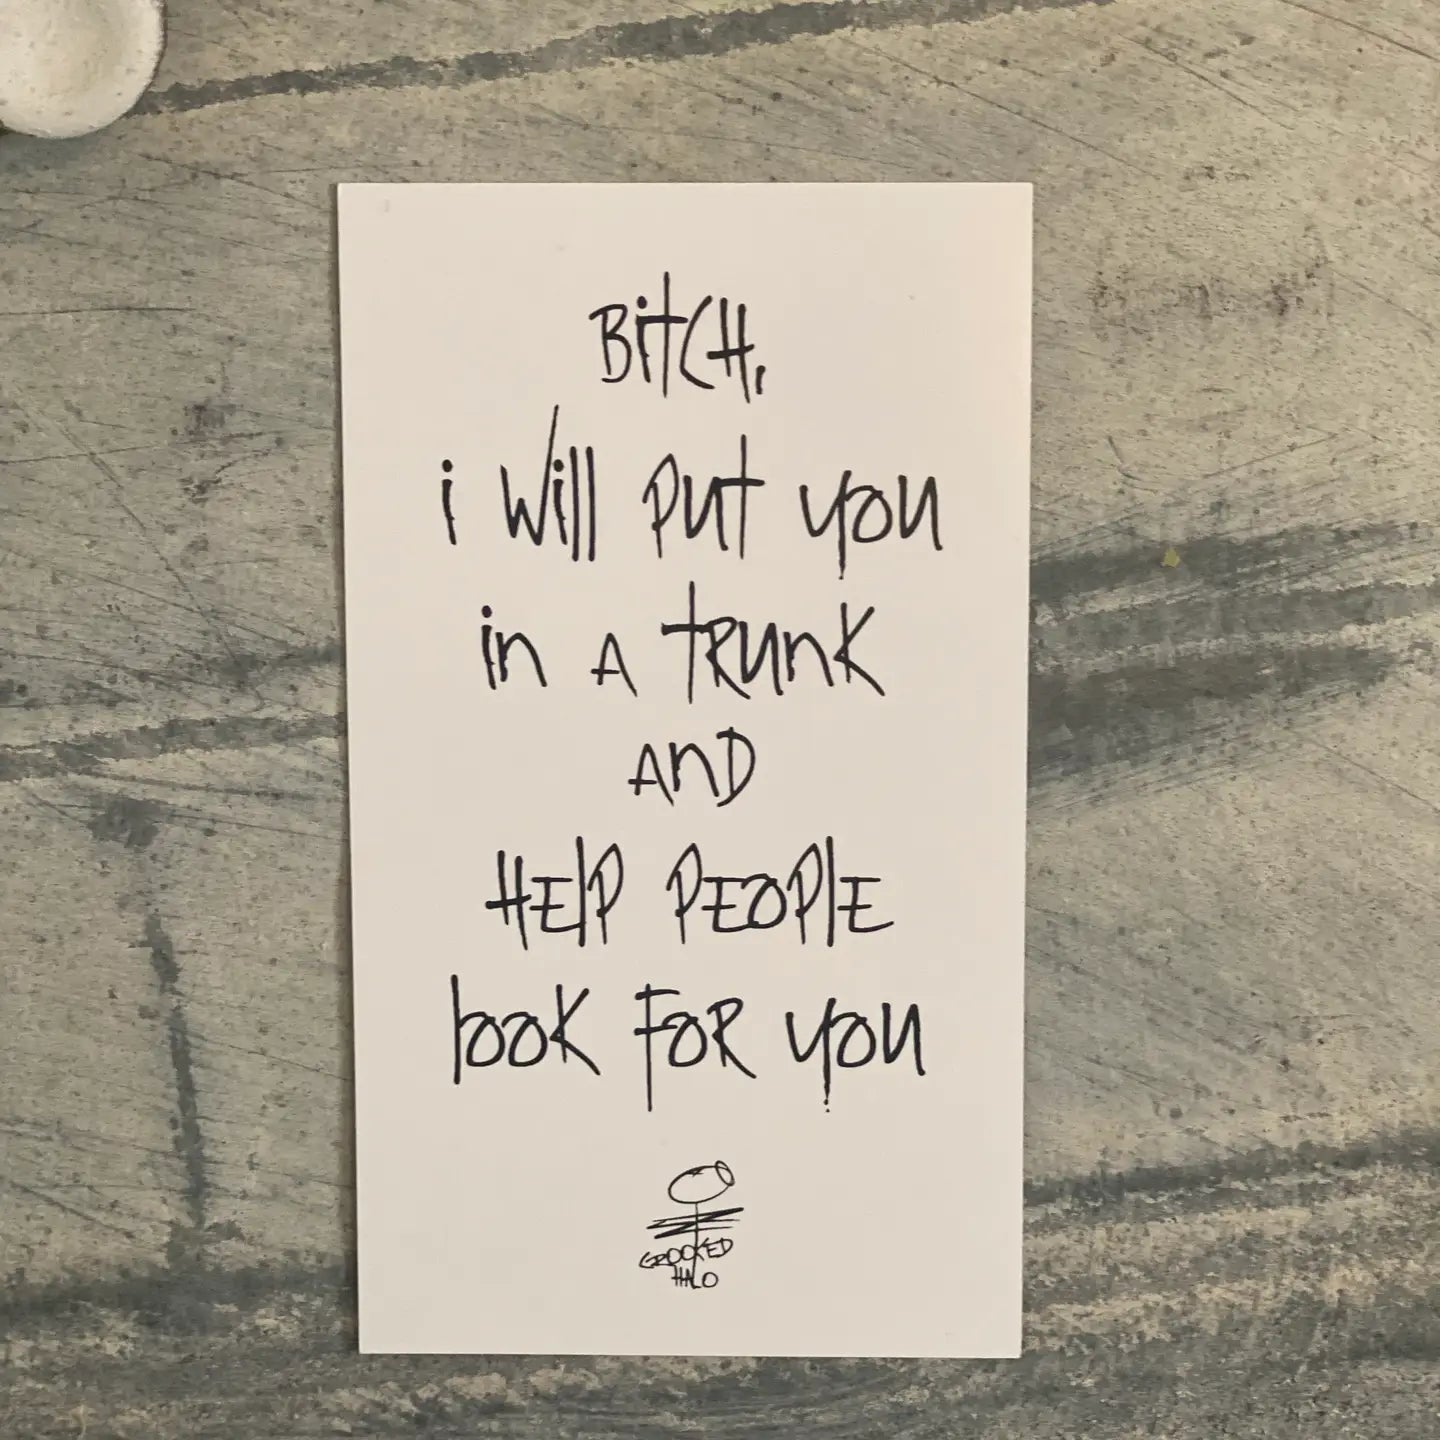 BitCH,
i will put you
in A tRunK
AnD
HElP PEOPlE
look FOR you
CROOKED
HALO